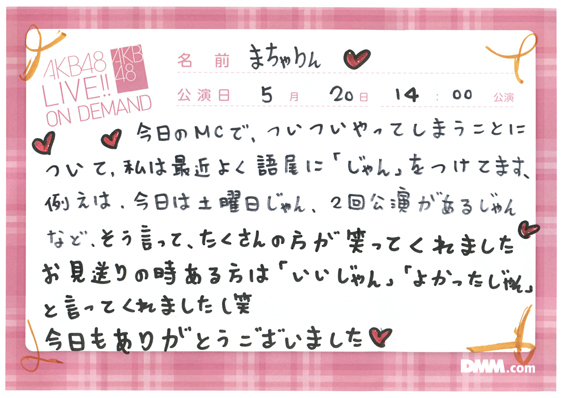 AKB48
LIVE!!
ON DEMAND
AKB
48
名前 まちゃりん
公演日 5月 20日 14:00 公演
今日のMCで、ついついやってしまうことに
ついて、私は最近よく語尾に「じゃん」をつけてます、
例えは、今日は土曜日じゃん、2回公演があるじゃん
など、そう言って、たくさんの方が笑ってくれました
お見送りの時ある方は「いいじゃん」「よかったじゃん」
と言ってくれました(笑
今日もありがとうございました
DMM.com